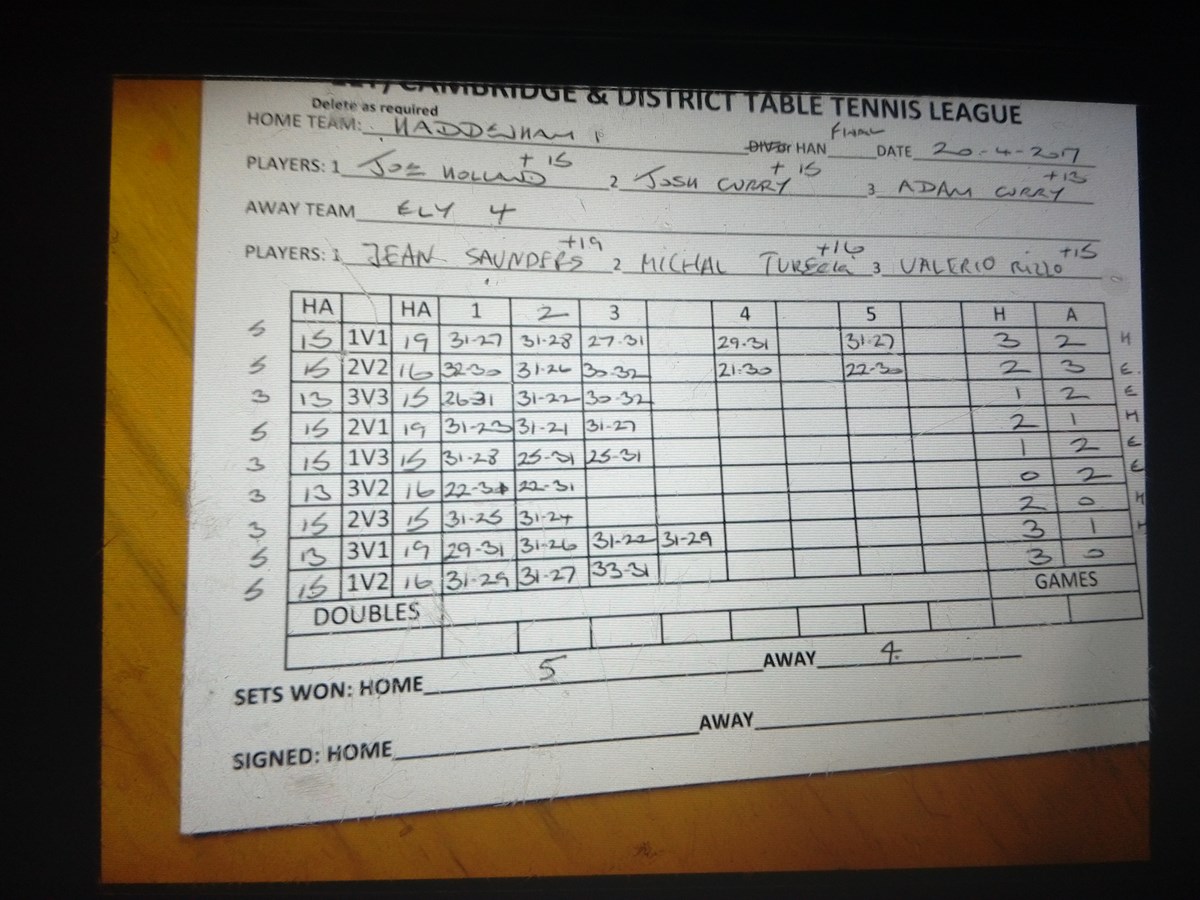 CAMBRIDGE & DISTRICT TABLE TENNIS LEAGUE
Delete as required
HOME TEAM: HADDENHAM 1 DIV or HAN FINAL DATE 20-4-2017
PLAYERS: 1 JOE HOLLAND +15 2 JOSH CURRY +15 3 ADAM CURRY +13
AWAY TEAM ELY 4
PLAYERS: 1 JEAN SAUNDERS +19 2 MICHAL +16 3 VALERIO RIZZO +15
HA HA 1 2 3 4 5 H A
5 15 1V1 19 31-27 31-28 27-31 29-31 31-27 3 2 H
5 15 2V2 16 32-30 31-26 30-32 21-30 22-30 2 3 E.
3 13 3V3 15 26-31 31-22 30-32 1 2 E
5 15 2V1 19 31-23 31-21 31-27 2 1 H
3 15 1V3 15 31-28 25-31 25-31 1 2 E
3 13 3V2 16 22-31 22-31 0 2 E
3 15 2V3 15 31-25 31-24 2 0 H
5 13 3V1 19 29-31 31-26 31-22 31-29 3 1 H
5 15 1V2 16 31-29 31-27 33-31 3 0
DOUBLES GAMES
SETS WON: HOME 5 AWAY 4
SIGNED: HOME AWAY